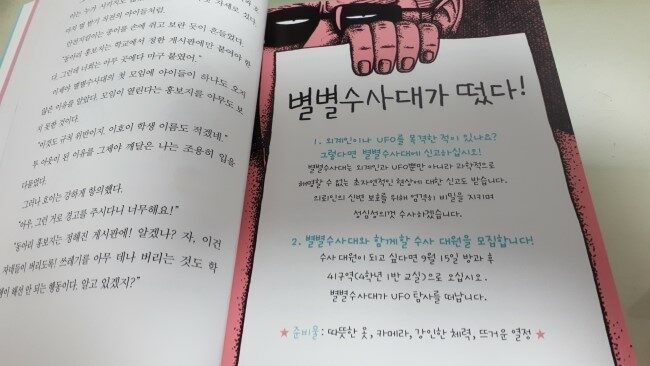 이는 누가 시키지도
자세로 있다.
직전의 아이들처럼.
안전지킴이는 종이를 손에 쥐고 보란 듯이 흔들었다.
"동아리 홍보지는 학교에서 정한 게시판에만 붙여야 한
다. 그런데 너희는 아무 곳에다 마구 붙였어."
이제야 별별수사대의 첫 모임에 아이들이 하나도 오지
않은 이유를 알았다. 모임이 열린다는 홍보지를 아무도 보
지 못한 것이다.
"이것도 규칙 위반이지. 이호이 학생 이름도 적겠네."
투 아웃이 된 이유를 그제야 깨달은 나는 조용히 입을
다물었다.
그러나 호이는 강하게 항의했다.
"아우, 그런 거로 경고를 주시다니 너무해요!"
"동아리 홍보지는 정해진 게시판에! 알겠나? 자, 이건
자네들이 버리도록! 쓰레기를 아무 데나 버리는 것도 학
생이 해선 안 되는 행동이다. 알고 있겠지?"
별별수사대가 떴다!
1. 외계인이나 UFO를 목격한 적이 있나요?
그렇다면 별별수사대에 신고하십시오!
별별수사대는 외계인과 UFO뿐만 아니라 과학적으로
해명할 수 없는 초자연적인 현상에 대한 신고도 받습니다.
의뢰인의 신변 보호를 위해 엄격히 비밀을 지키며
성심성의껏 수사하겠습니다.
2. 별별수사대와 함께할 수사 대원을 모집합니다!
수사 대원이 되고 싶다면 9월 15일 방과 후
41구역(4학년 1반 교실)으로 오십시오.
별별수사대가 UFO 탐사를 떠납니다.
★ 준비물: 따뜻한 옷, 카메라, 강인한 체력, 뜨거운 열정 ★